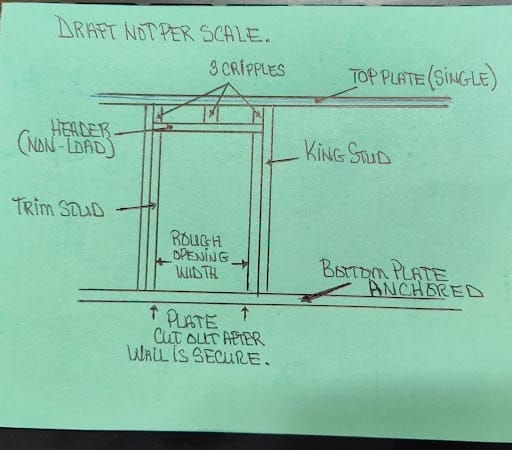 DRAFT NOT PER SCALE.
3 CRIPPLES
TOP PLATE (SINGLE)
HEADER
(NON-LOAD)
KING STUD
TRIM STUD
ROUGH
OPENING
WIDTH
BOTTOM PLATE
ANCHORED
PLATE
CUT OUT AFTER
WALL IS SECURE.